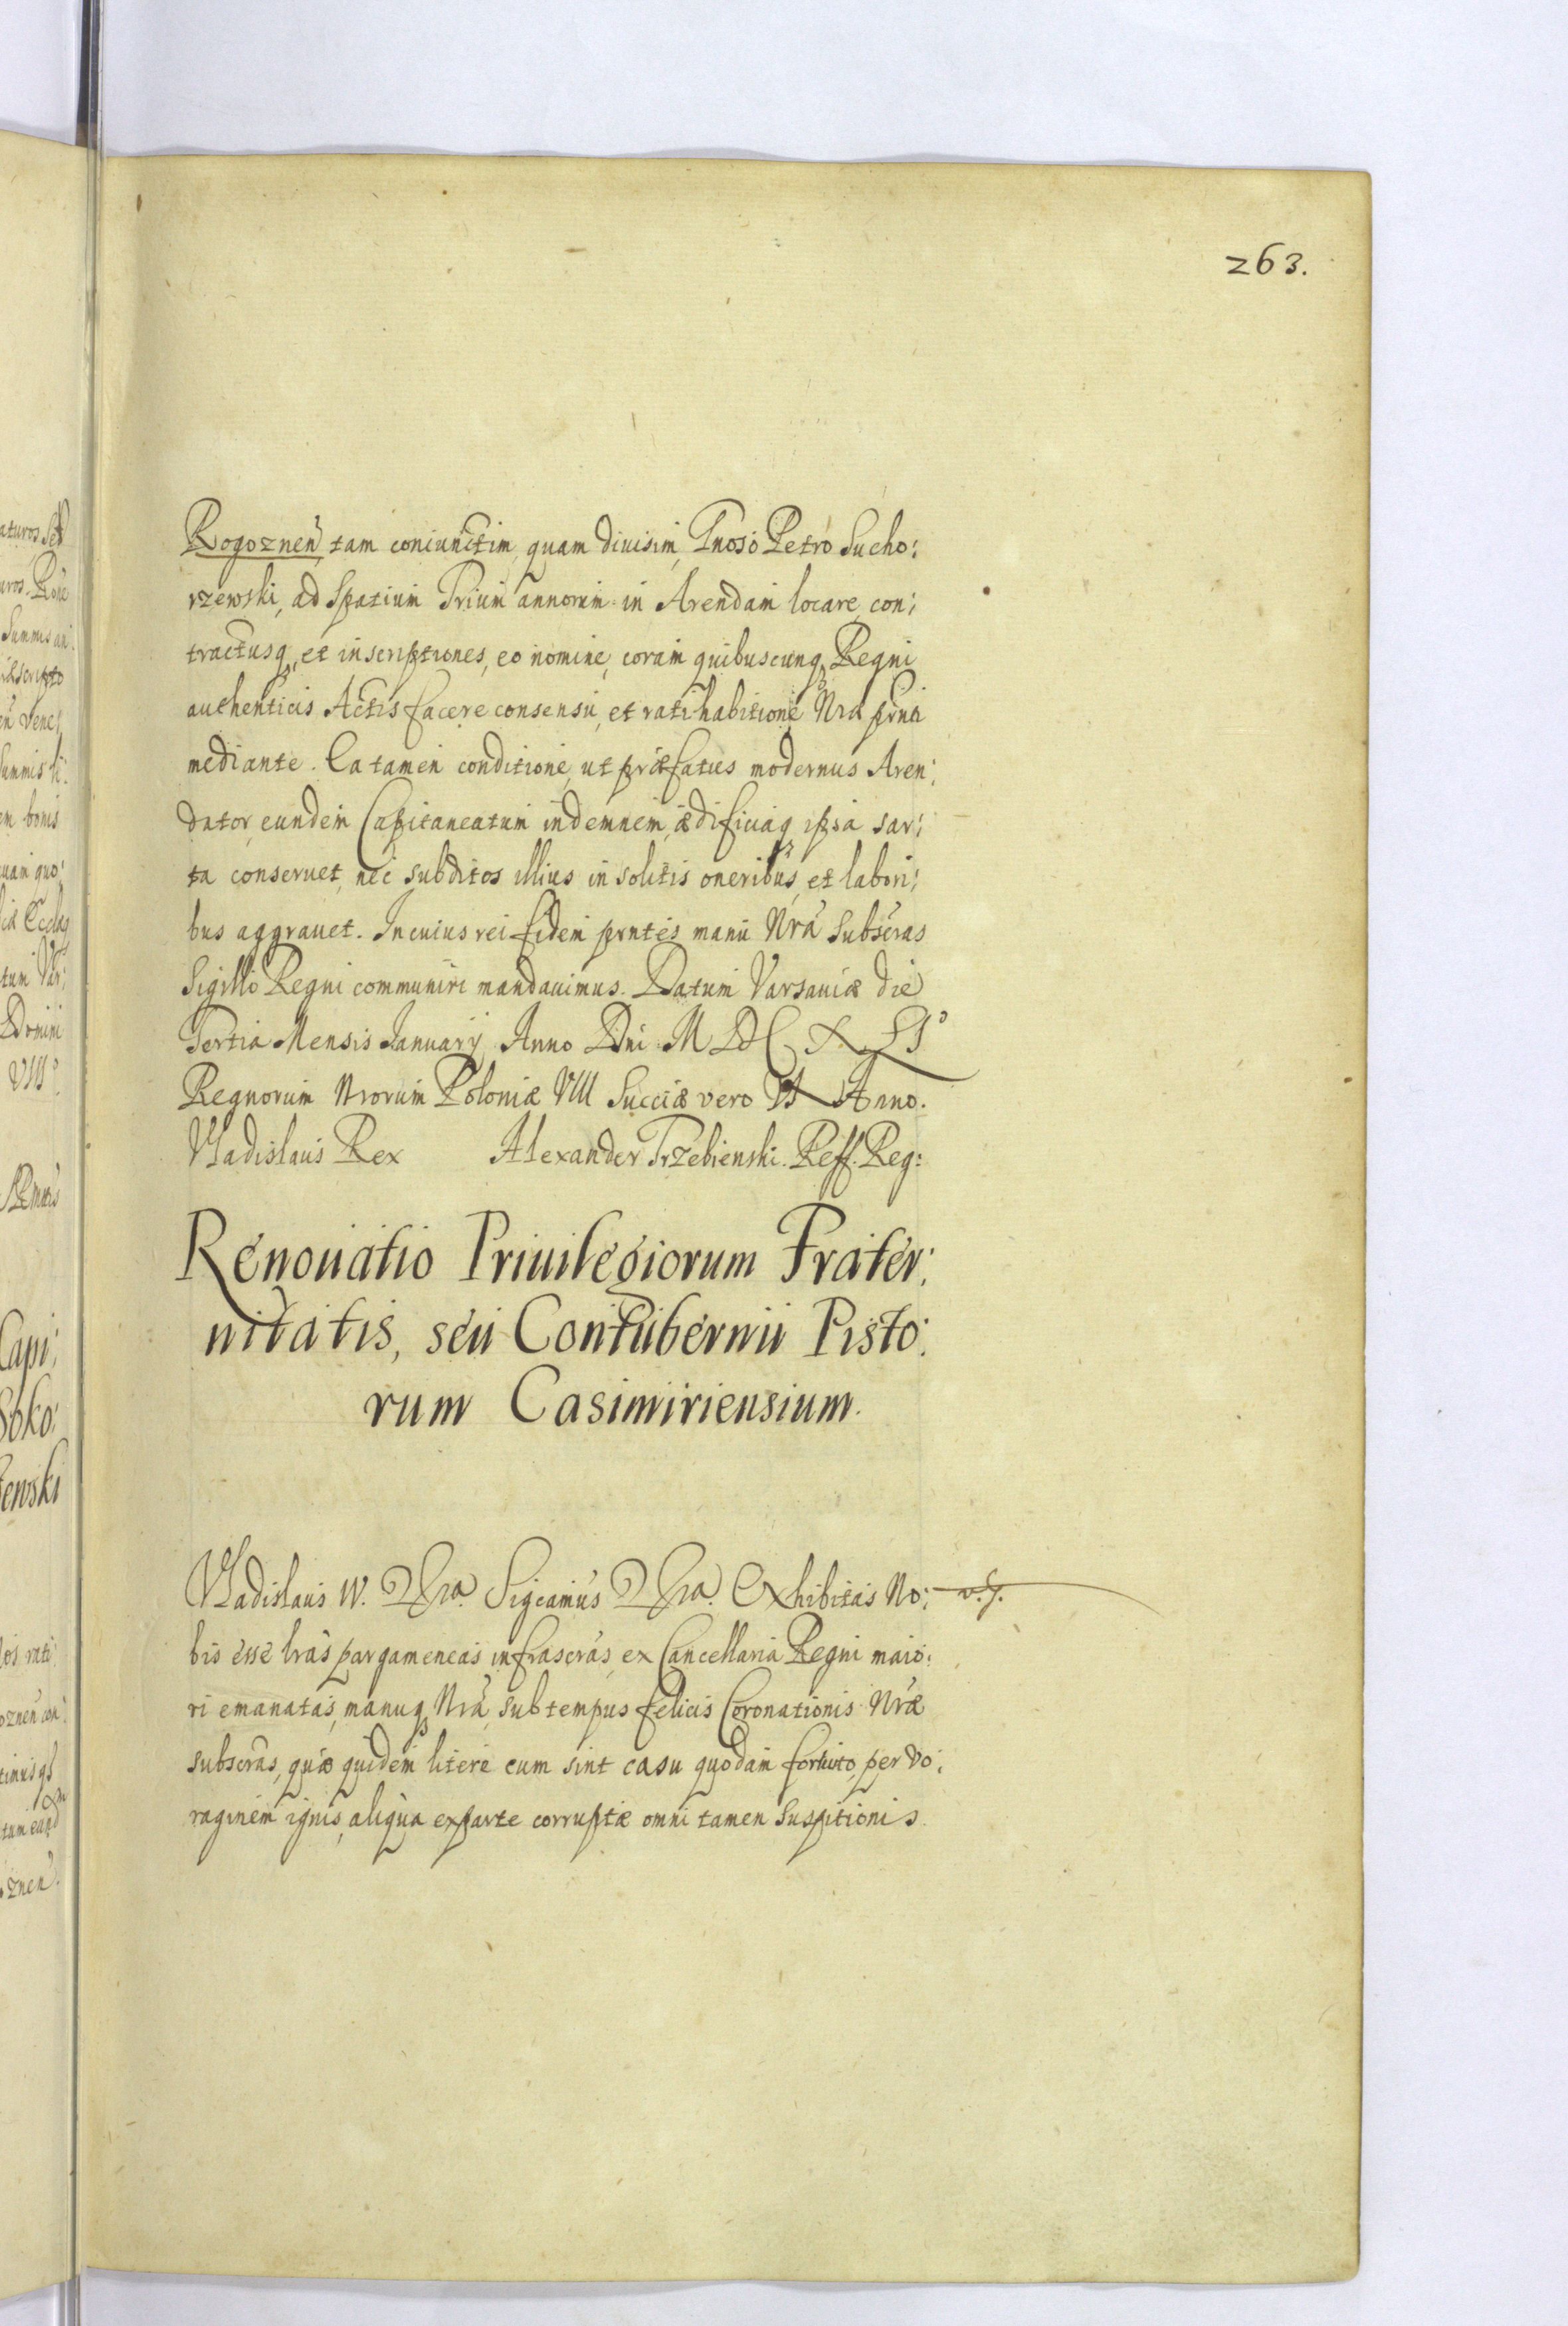 263.
Rogoznen̄, tam coniunctim, quam diuisim, Gnoso Petro Sucho:
rzewski, ad Spatium Trium annorum in Arendam locare, con:
tractusq, et inscriptiones, eo nomine, coram quibuscunq Regni
authenticis Actis facere consensu, et ratihabitione Nra pnti
mediante. Ea tamen conditione, ut præfatus modernus Aren:
dator, eundem Capitaneatum indemnem, ædificiaq ipsa sar:
ta conseruet, nec subditos illius insolitis oneribus, et labori:
bus aggrauet. In cuius rei fidem pntes manu Nrā Subscras
Sigillo Regni communiri mandauimus. Datum Varsauiæ die
Tertia Mensis Januarij Anno Dni M DC XLIº
Regnorum Nrorum Poloniæ VIII Sueciæ vero IX Anno.
Vladislaus Rex Alexander Trzebienski. Reff. Reg:
Renouatio Priuilegiorum Frater:
nitatis, seu Contubernii Pisto:
rum Casimiriensium.
Vladislaus IV. Sigcamus Exhibitas No:
bis esse lras pargameneas infrascras, ex Cancellaria Regni maio:
ri emanatas, manuq Nra, sub tempus felicis Coronationis Nræ
subscras, quæ quidem litere cum sint casu quodam fortuito, per vo:
raginem ignis, aliqua ex parte corruptæ omni tamen suspitionis